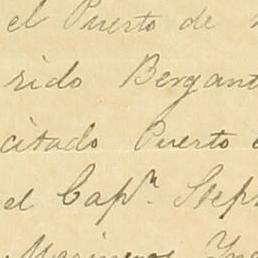 el Puerto de
rido Bergant
citado Puerto
el Capn. Steph
Marineros Ing